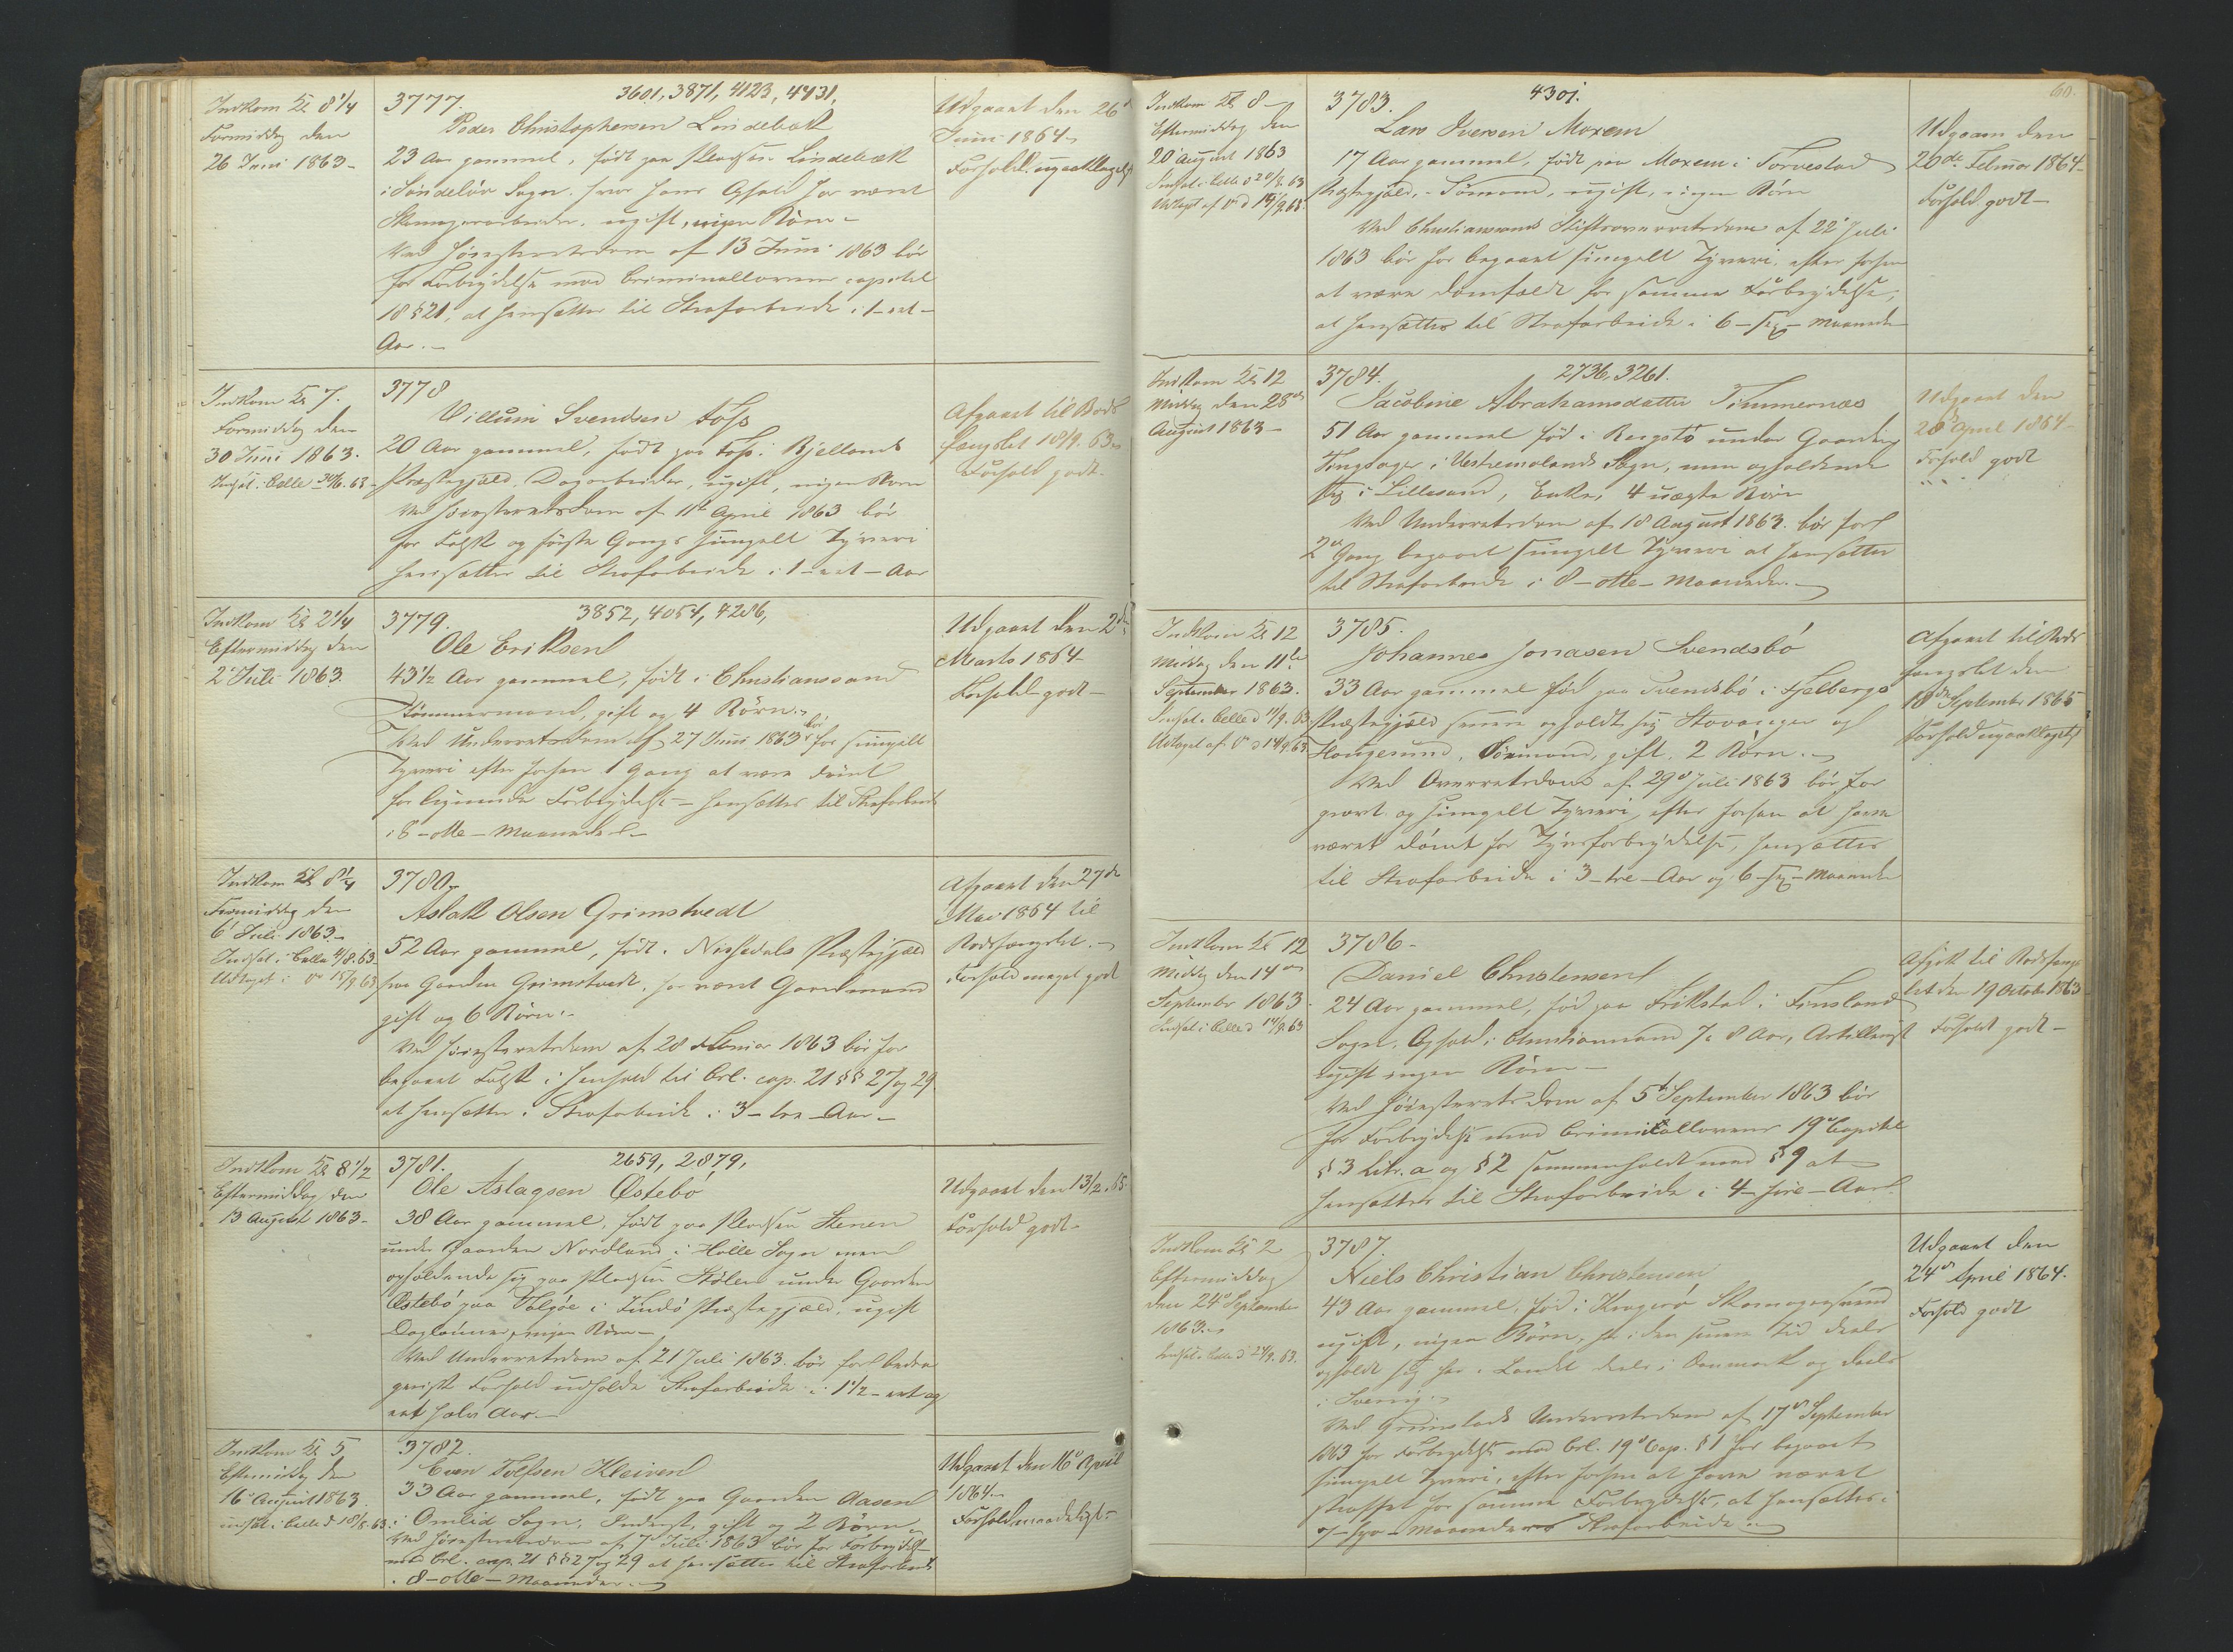 Indkom Kl 8 1/4
Formiddag den
26 Juni 1863-
3777. 3601, 3871, 4123, 4431,
Peder Christophersen Lindebæk
23 Aar gammel, født paa Pladsen Lindebæk
i Søndeløv Sogn, hvor hans Ophold har været
ugift, ingen Børn-
Ved Høiesteretsdom af 13 Juni 1863 bør
for Forbrydelse mod Criminallovens capitel
18 § 21, at hensættes til Strafarbeide i 1-eet-
Aar.-
Udgaaet den 26
Juni 1864-
Forhold upaaklageligt
Indkom Kl 7.
Formiddag den
30 Juni 1863.
Indsat i Celle 30/6. 63-
3778
Villum Svendsen Foss
20 Aar gammel, født paa Foss i Bjellands
Præstegjæld, Dagarbeider, ugift, ingen Børn
Ved Høiesteretsdom af 11te April 1863 bør
for Falsk og første Gangs simpelt Tyveri
hensættes til Strafarbeide i 1-eet-Aar
Afgaaet til Bods
fængslet 18/9. 63-
Forhold godt.
Indkom Kl 2 1/4
Eftermiddag den
2 Juli 1863.
3779. 3852, 4054, 4286,
Ole Eriksen
43 1/2 Aar gammel, født i Christianssand
Tømmermand, gift og 4 Børn.-
Ved Underretsdom af 27 Juni 1863 bør for simpelt
Tyveri efter forhen 1 Gang at være dømt
for lignende Forbrydelse - hensættes til Strafarbeide
i 8-otte-Maaneder-
Udgaaet den 2den
Marts 1864-
Forhold godt-
Indkom Kl 8 1/4
Formiddag den
6 Juli 1863-
Indsat i Celle 4/8. 63
Udtaget i do 15/9 63
3780-
Aslak Olsen Grimstvedt
52 Aar gammel, født i Nissedals Præstegjæld
paa Gaarden Grimstvedt, har været Gaardmand
gift og 6 Børn.-
Ved Høiesteretsdom af 28 Februar 1863 bør for
begaaet Falsk i Henhold til Crl. cap. 21 §§ 27 og 29
at hensættes i Strafarbeide i 3-tre-Aar-
Afgaaet den 27de
Mai 1864 til
Bodsfængslet.-
Forhold meget godt
Indkom Kl 8 1/2
Eftermiddag den
13 August 1863-
3781. 2659, 2879,
Ole Aslagsen Østebø
38 Aar gammel, født paa Pladsen Stenen
under Gaarden Nordland i Halle Sogn men
opholdende sig paa Pladsen Stølen under Gaarden
Østebø paa Talgøe i Findø Præstegjæld, ugift
Daglønner, ingen Børn-
Ved Underretsdom af 21 Juli 1863 bør for bedra
gerisk Forhold udholde Strafarbeide i 1 1/2-eet og
eet halv Aar-
Udgaaet den 13/2. 65.
Forhold godt-
Indkom Kl 5
Eftermiddag den
16 August 1863.
indsat i Celle d 18/8. 63.
3782.
Even Tolfsen Kleiven
33 Aar gammel, født paa Gaarden Aasen
i Omlid Sogn, Inderst, gift og 2 Børn-
Ved Høiesteretsdom af 7 Juli 1863 bør for Forbrydelse
mod Crl. cap. 21 §§ 27 og 29 at hensættes til Strafarbeide
i 8-otte-Maaneder-
Udgaaet den 16 April
1864-
Forhold maadeligt-
60.
Indkom Kl 8-
Eftermiddag den
20 August 1863
Indsat i Celle d 20/8. 63
Udtaget af do d 14/9. 63.
3783. 4301.
Lars Iversen Moxem
17 Aar gammel, født paa Moxem i Torvestad
Præstegjæld, Sømand, ugift, ingen Børn
Ved Christianssands Stiftsoverretsdom af 22 Juli
1863 bør for begaaet simpelt Tyveri, efter forhen
at være domfældt for samme Forbrydelse,
at hensættes til Strafarbeide i 6-sex-Maaneder
Udgaaet den
20de Februar 1864-
Forhold godt-
Indkom Kl 12
Middag den 28de
August 1863-
3784. 2736, 3261.
Jacobine Abrahamsdatter Timmernæs
51 Aar gammel, fød i Bergstø under Gaarden
Tingsager i Vestremolands Sogn, men opholdende
sig i Lillesand, Enke, 4 uægte Børn
Ved Underretsdom af 18 August 1863 bør for
2de Gang begaaet simpelt Tyveri at hensættes
til Strafarbeide i 8-otte-Maaneder.-
Udgaaet den
28 April 1864-
Forhold godt
Indkom Kl 12
Middag den 11te
September 1863.
Indsat i Celle d 11/9. 63
Udtaget af do d 14/9. 63
3785.
Johannes Jonasen Svendsbø
33 Aar gammel, fød paa Svendsbø i Fjelbergs
Præstegjæld, senere opholdt sig Stavanger og
Haugesund, Sømand, gift, 2 Børn.-
Ved Overretsdom af 29 Juli 1863 bør for
grovt og simpelt Tyveri, efter forhen at have
været dømt for Tyvsforbrydelse, hensættes
til Strafarbeide i 3-tre-Aar og 6-sex-Maaneder
Afgaaet til Bods
fængslet den
18de September 1865
Forhold upaaklageligt
Indkom Kl 12
Middag den 14de
September 1863.
Indsat i Celle d 14/9. 63
3786-
Daniel Christensen
24 Aar gammel, fød paa Frikstad i Finsland
Sogn. Ophold i Christianssand 7 a 8 Aar, Artillerist
ugift ingen Børn-
Ved Høiesterets Dom af 5te September 1863 bør
for Forbrydelse mod Criminallovens 19 Capitel
§ 3 Litr. a og § 2 sammenholdt med § 9 at
hensættes til Strafarbeide i 4-fire-Aar.
Afgik til Bodsfængs
let den 19 October 1863
Forhold godt-
Indkom Kl 2
Eftermiddag
den 24 September
1863-
Indsat i Celle d 24/9. 63.
3787.
Niels Christian Christensen
43 Aar gammel, fød i Kragerø Skomagersvend
ugift, ingen Børn, har i den senere Tid deels
opholdt sig her i Landet deels i Danmark og deels
i Sverrig.-
Ved Grimstads Underretsdom af 17de September
1863 for Forbrydelse mod Crl. 19 Cap. § 1 for begaaet
simpelt Tyveri, efter forhen at have været
straffet for samme Forbrydelse, at hensættes i
7-syv-Maaneders Strafarbeide.-
Udgaaet den
24de April 1864.
Forhold godt